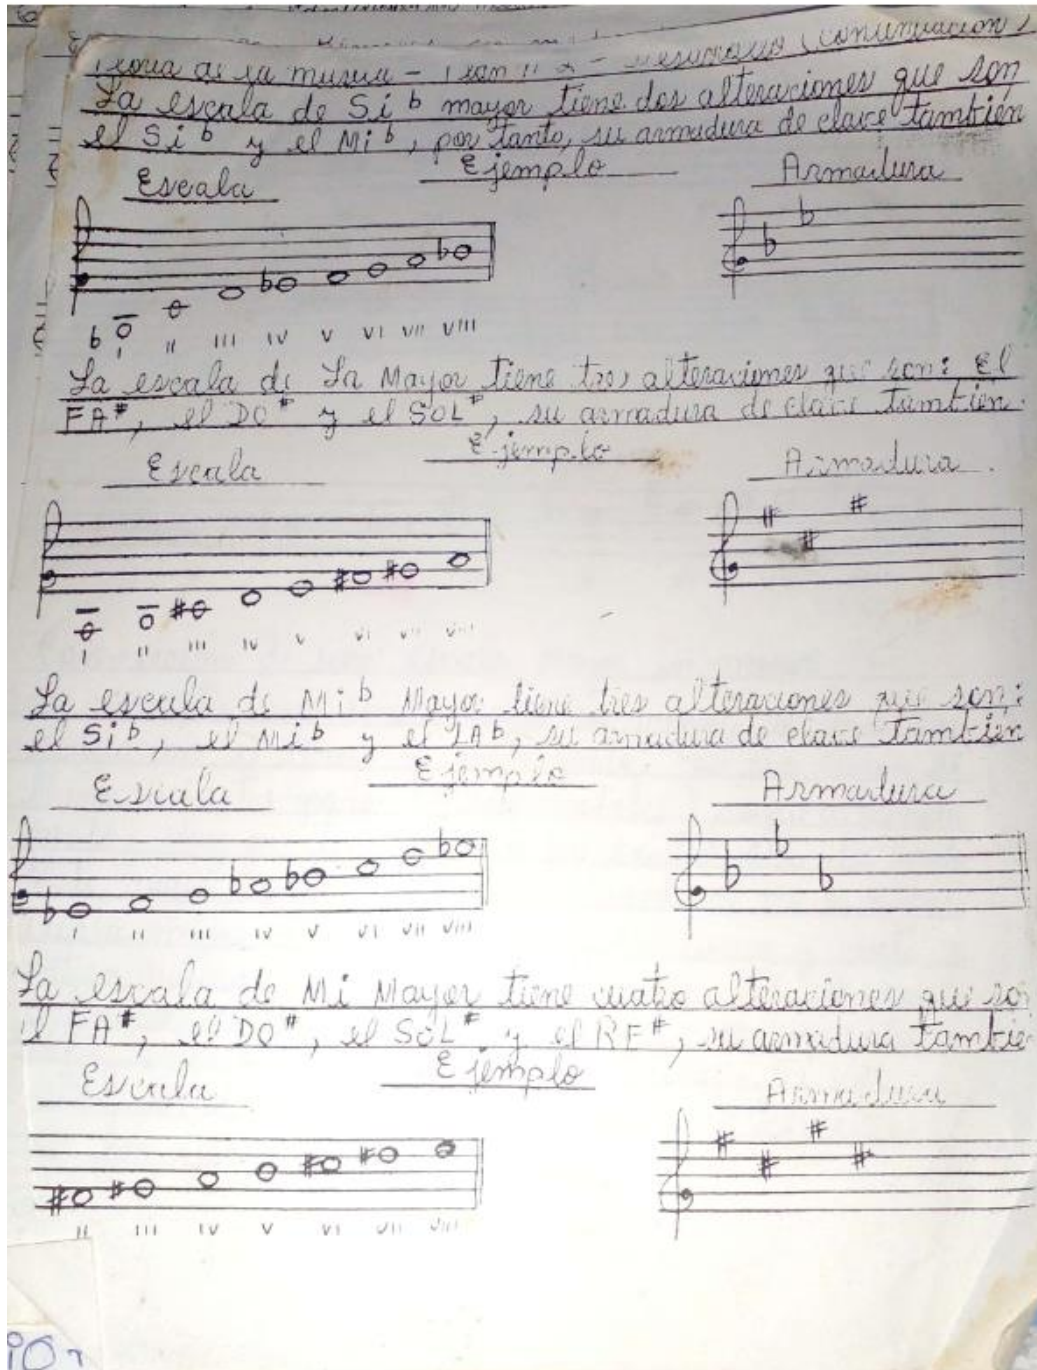 Teoría de la música - Plan nº 2 - Desarrollo (continuación)
La escala de Si b mayor tiene dos alteraciones que son
el Si b y el Mi b, por tanto, su armadura de clave también
Ejemplo
Escala Armadura
I II III IV V VI VII VIII
La escala de La Mayor tiene tres alteraciones que son: El
FA#, el DO# y el SOL#, su armadura de clave también.
Ejemplo
Escala Armadura.
I II III IV V VI VII VIII
La escala de Mi b Mayor tiene tres alteraciones que son:
el Si b, el Mi b y el LA b, su armadura de clave también
Ejemplo
Escala Armadura
I II III IV V VI VII VIII
La escala de Mi Mayor tiene cuatro alteraciones que so
el FA#, el DO#, el SOL# y el RE#, su armadura tambie
Ejemplo
Escala Armadura
II III IV V VI VII VIII